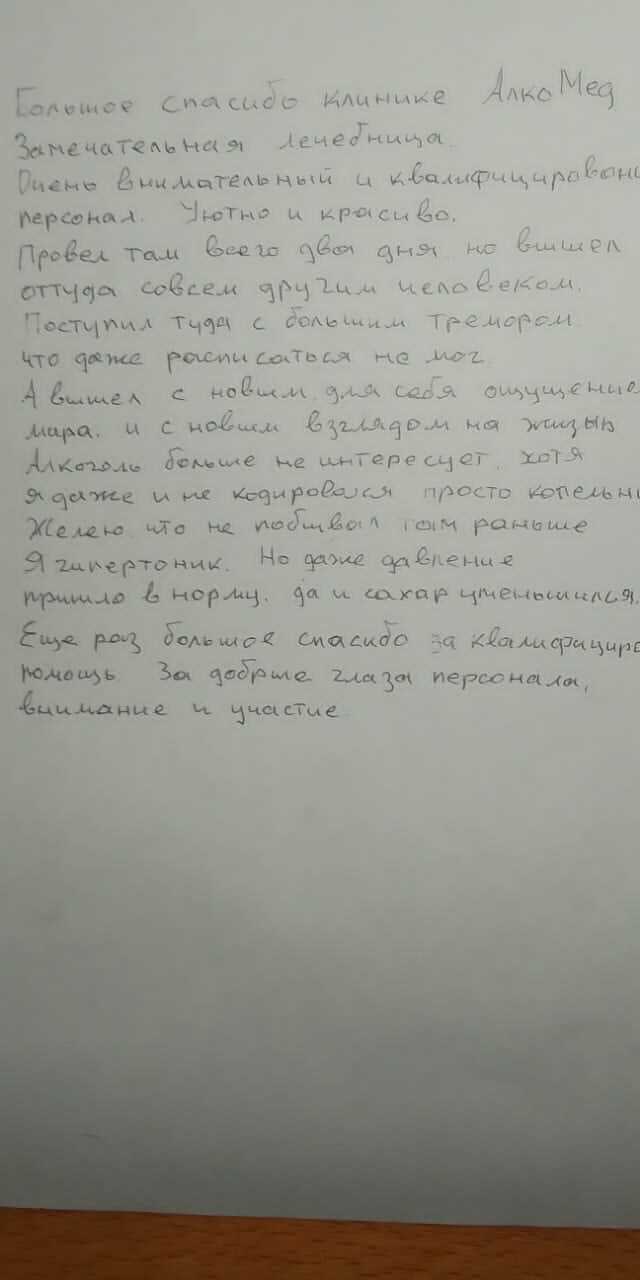 Большое спасибо клинике АлкоМед
Замечательная лечебница.
Очень внимательный и квалифицирован
персонал. Уютно и красиво.
Провел там всего два дня но вышел
оттуда совсем другим человеком.
Поступил туда с большим тремором
что даже расписаться не мог
А вышел с новым для себя ощущение
мира. и с новым взглядом на жизнь
Алкоголь больше не интересует, хотя
я даже и не кодировался просто капельни
Желею что не побывал там раньше
Я гипертоник. Но даже давление
пришло в норму. да и сахар уменьшился.
Еще раз большое спасибо за квалифициро
помощь За добрые глаза персонала,
внимание и участие